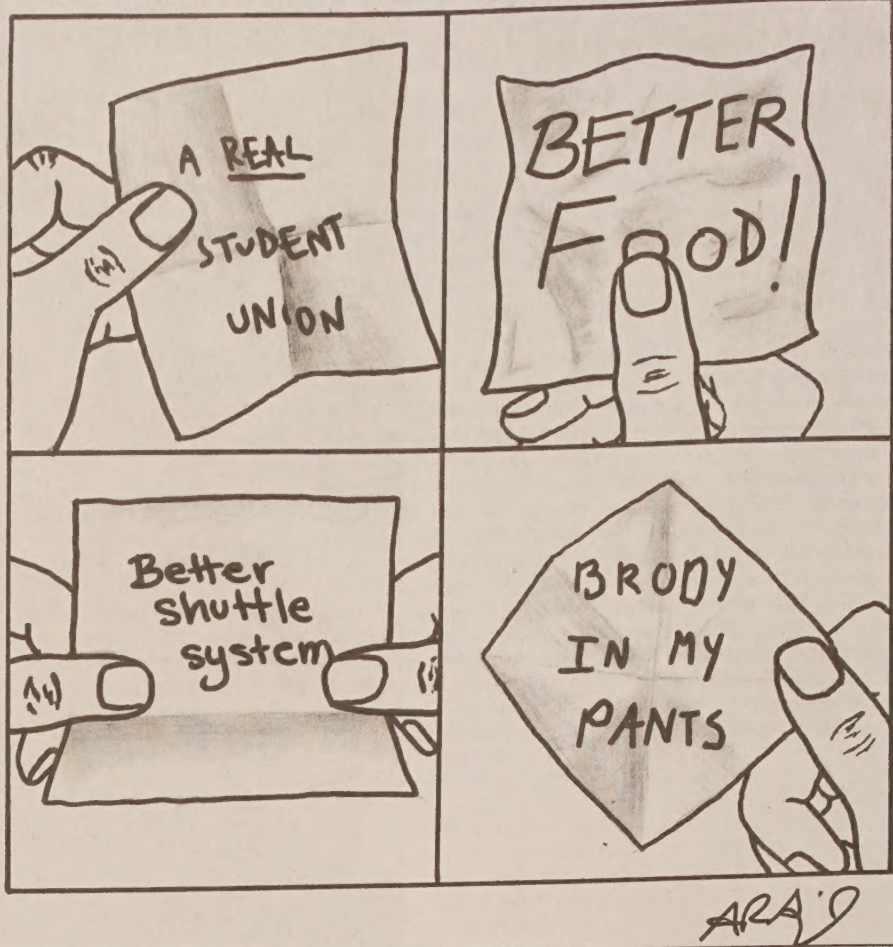 A REAL
STUDENT
UNION
BETTER
FOOD!
Better
shuttle
system
BRODY
IN MY
PANTS